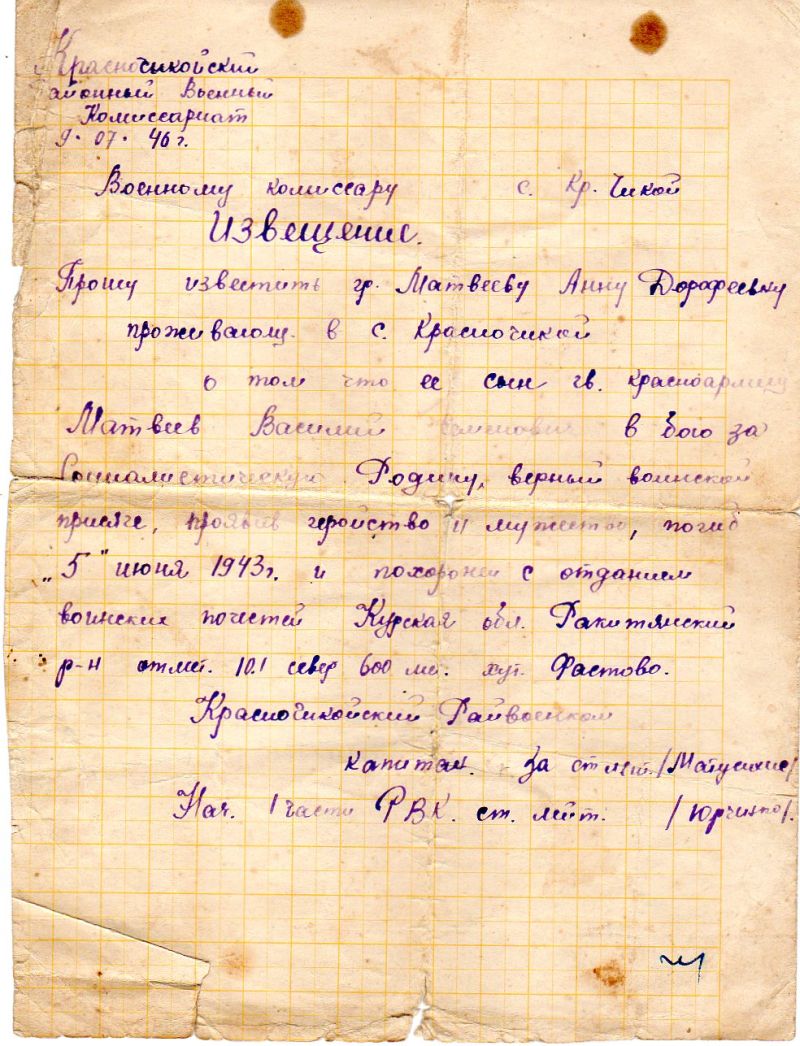 Красночикойский
айонный Военный
Комиссариат
9. 07. 46 г.
Военному комиссару с. Кр. Чикой
Извещение.
Прошу известить гр. Матвееву Анну Дорофеевну
проживающ. в с. Красночикой
о том что ее сын гв. красноармеец
Матвеев Василий Семенович в бою за
Социалистическую Родину, верный воинской
присяге, проявив геройство и мужество, погиб
„5" июня 1943г. и похоронен с отданием
воинских почестей Курская обл. Ракитянский
р-н отмет. 10.1 север 600 м. хут. Фастово.
Красночикойский Райвоенком
капитан. За ст лейт.
Нач. 1 части РВК. ст. лейт. /Юрченко/.